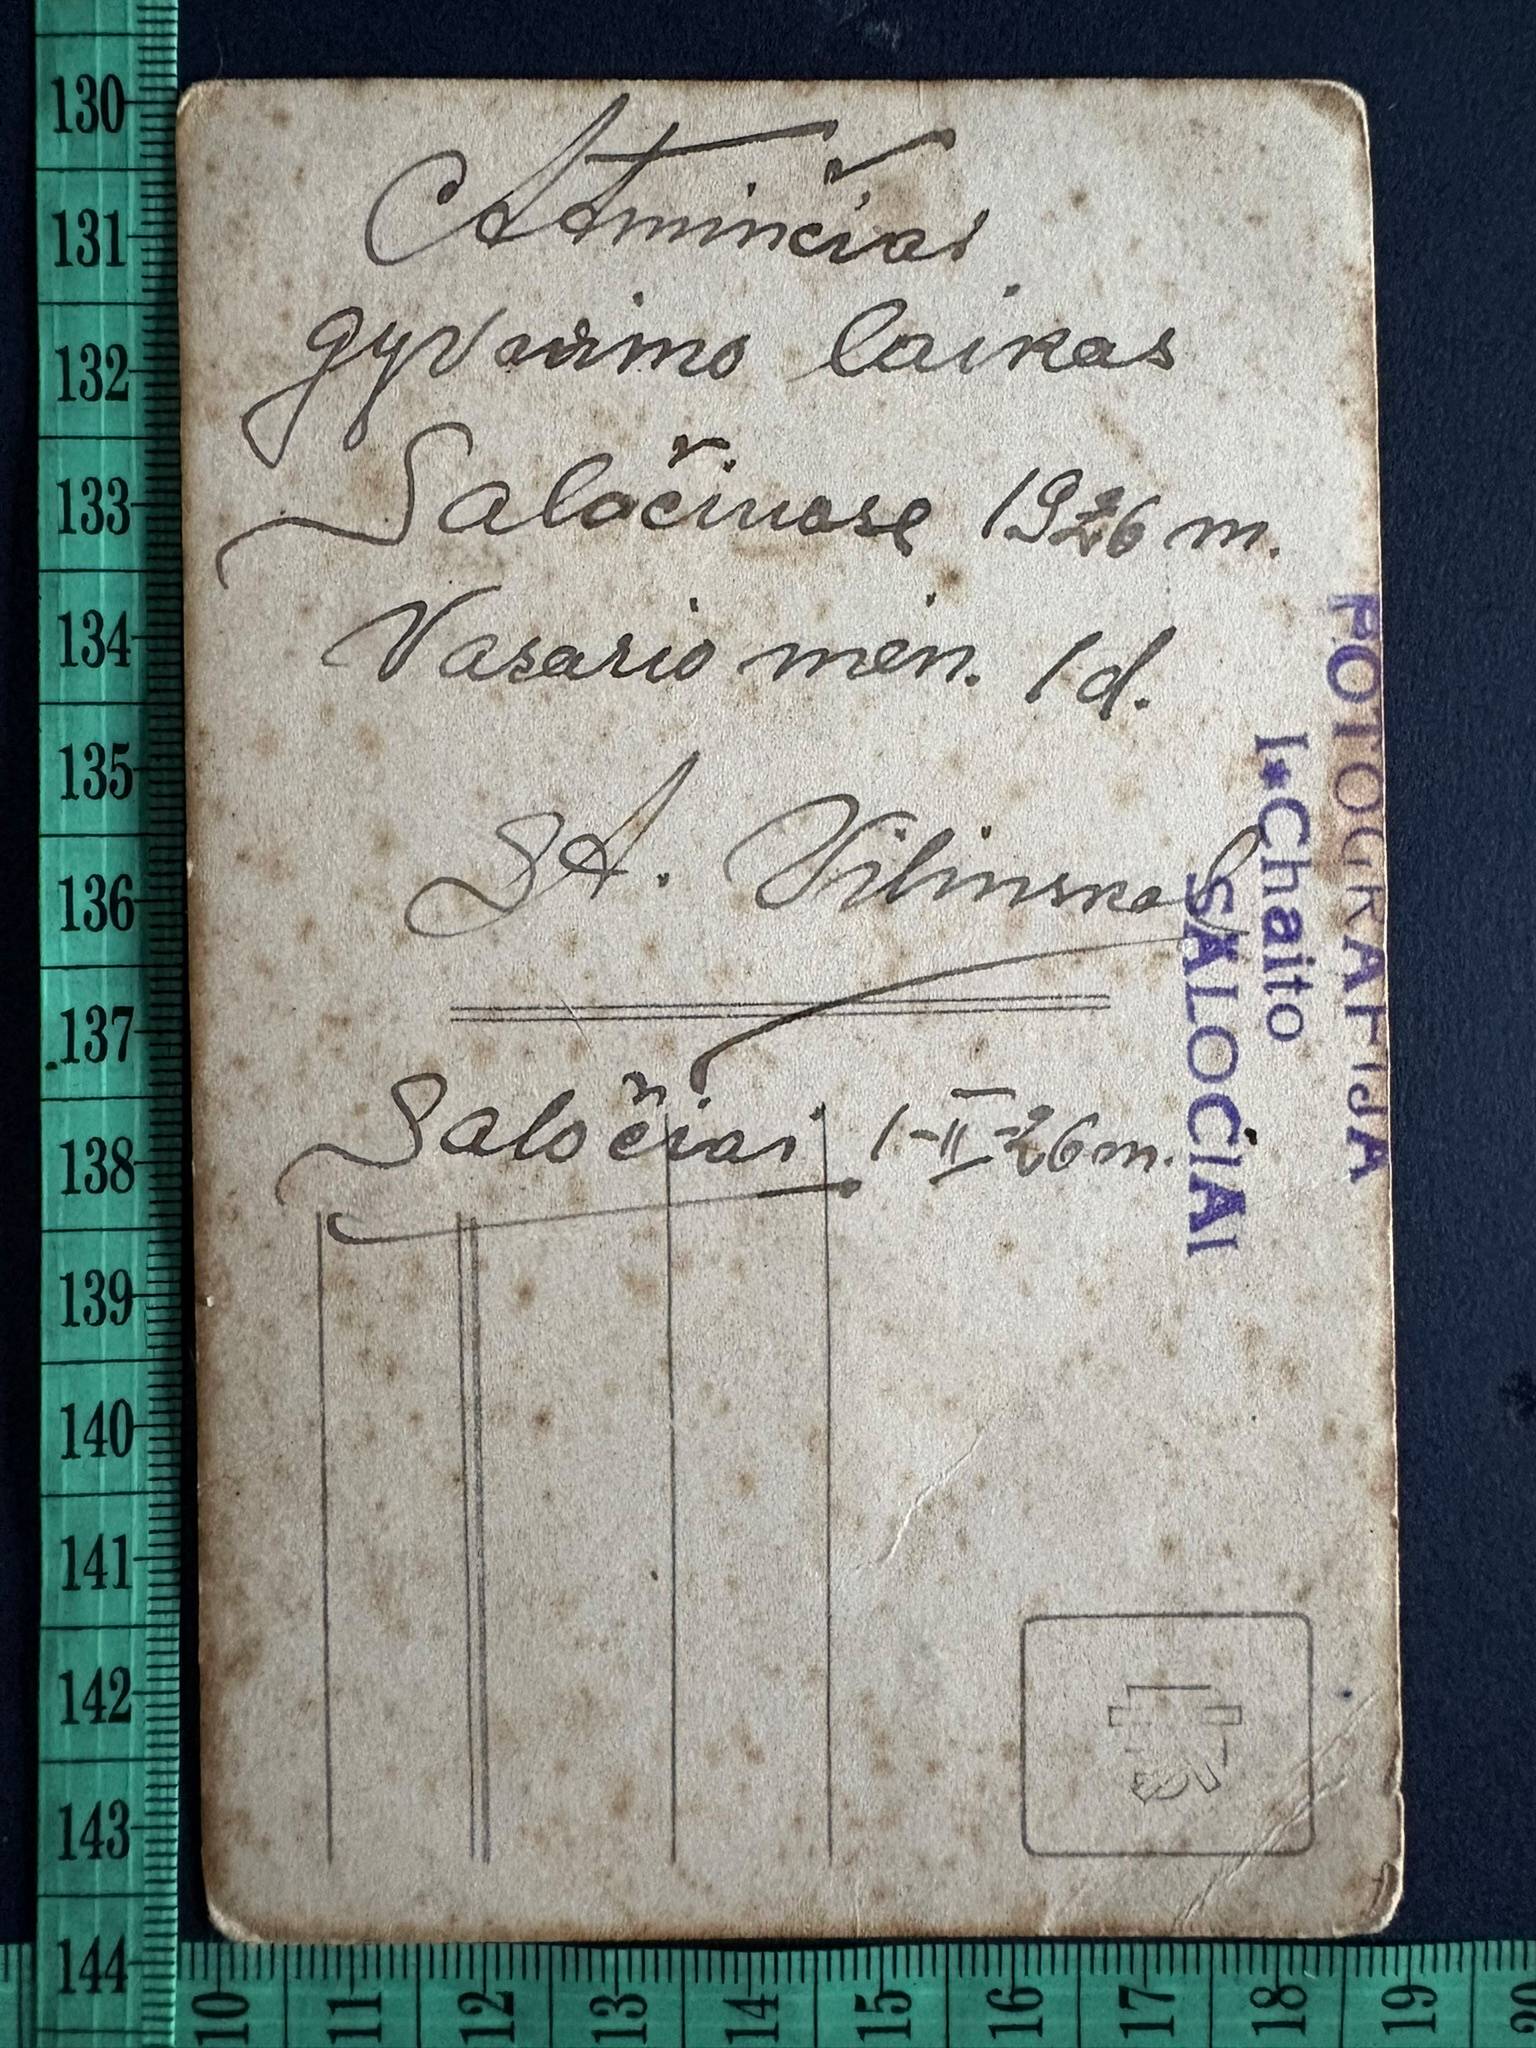 Atminčiai
gyvavimo laikas
Saločiuose 1926 m.
Vasario mėn. 1 d.
St. Vilinskas
Saločiai 1-II-26 m.
FOTOGRAFIJA
I*Chaito
SALOCIAI
130
131
132
133
134
135
136
137
138
139
140
141
142
143
144
10
11
12
13
14
15
16
17
18
19
20